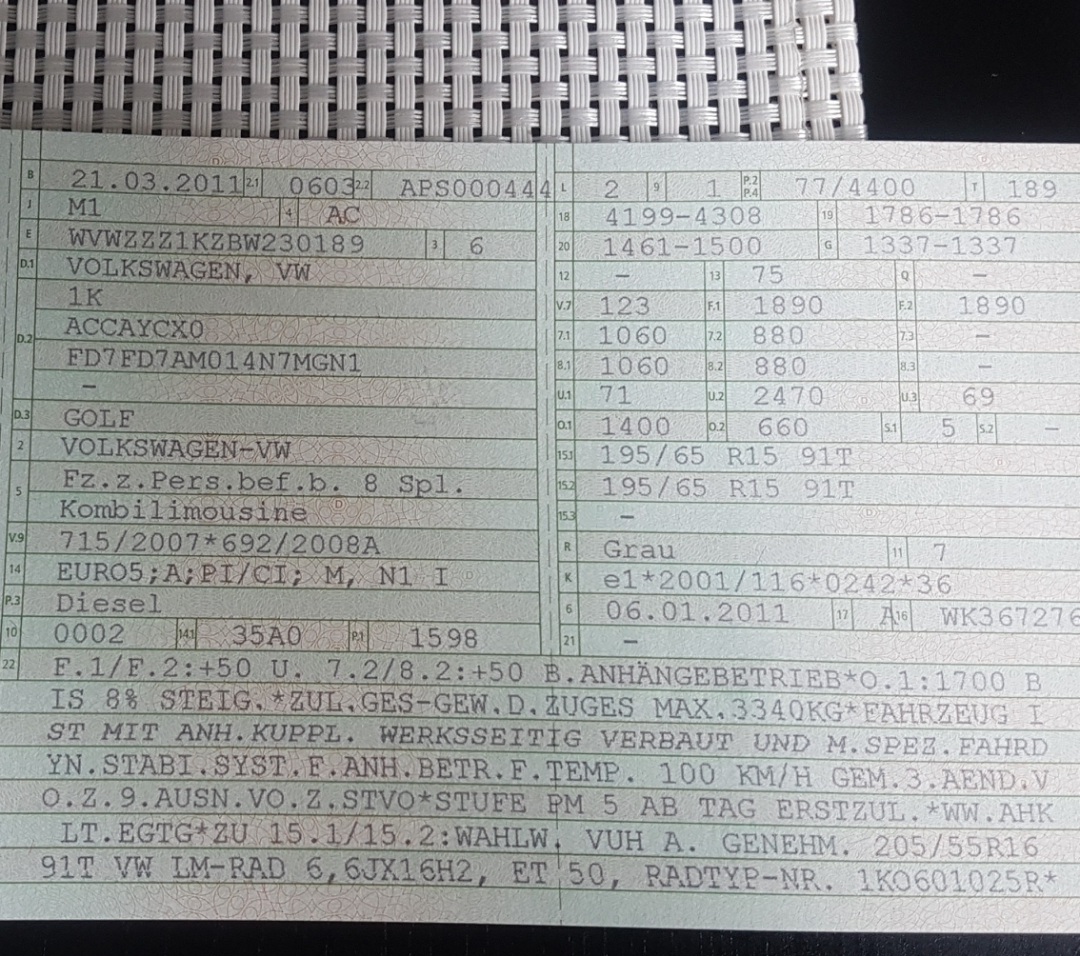 B 21.03.2011 2.1 0603 2.2 APS000444 L 2 9 1 P.2 P.4 77/4400 T 189
J M1 4 AC 18 4199-4308 19 1786-1786
E WVWZZZ1KZBW230189 3 6 20 1461-1500 G 1337-1337
D.1 VOLKSWAGEN, VW 12 - 13 75 Q -
1K V.7 123 F.1 1890 F.2 1890
D.2 ACCAYCX0 7.1 1060 7.2 880 7.3 -
FD7FD7AM014N7MGN1 8.1 1060 8.2 880 8.3 -
- U.1 71 U.2 2470 U.3 69
D.3 GOLF O.1 1400 O.2 660 S.1 5 S.2 -
2 VOLKSWAGEN-VW 15.1 195/65 R15 91T
5 Fz.z.Pers.bef.b. 8 Spl. 15.2 195/65 R15 91T
Kombilimousine 15.3 -
V.9 715/2007*692/2008A R Grau 11 7
14 EURO5;A;PI/CI; M, N1 I K e1*2001/116*0242*36
P.3 Diesel 6 06.01.2011 17 A 16 WK367276
10 0002 14.1 35A0 P.1 1598 21 -
22 F.1/F.2:+50 U. 7.2/8.2:+50 B.ANHÄNGEBETRIEB*O.1:1700 B
IS 8% STEIG.*ZUL.GES-GEW.D.ZUGES MAX.3340KG*FAHRZEUG I
ST MIT ANH.KUPPL. WERKSSEITIG VERBAUT UND M.SPEZ.FAHRD
YN.STABI.SYST.F.ANH.BETR.F.TEMP. 100 KM/H GEM.3.AEND.V
O.Z.9.AUSN.VO.Z.STVO*STUFE PM 5 AB TAG ERSTZUL.*WW.AHK
LT.EGTG*ZU 15.1/15.2:WAHLW. VUH A. GENEHM. 205/55R16
91T VW LM-RAD 6,6JX16H2, ET 50, RADTYP-NR. 1K0601025R*